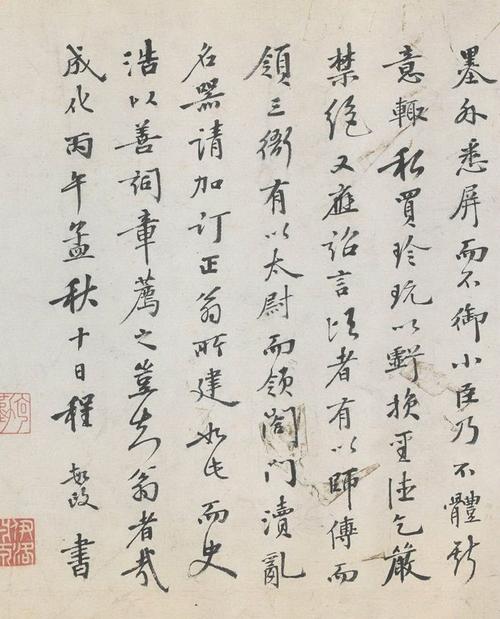 墨外悉屏而不御小臣乃不體聖
意輒私買珍玩以虧損聖德乞嚴
禁絕又應詔言頃者有以師傅而
領三衙有以太尉而領閤門瀆亂
名器請加訂正翁所建如此而史
浩以善詞章薦之豈知翁者哉
成化丙午孟秋十日程敏政書